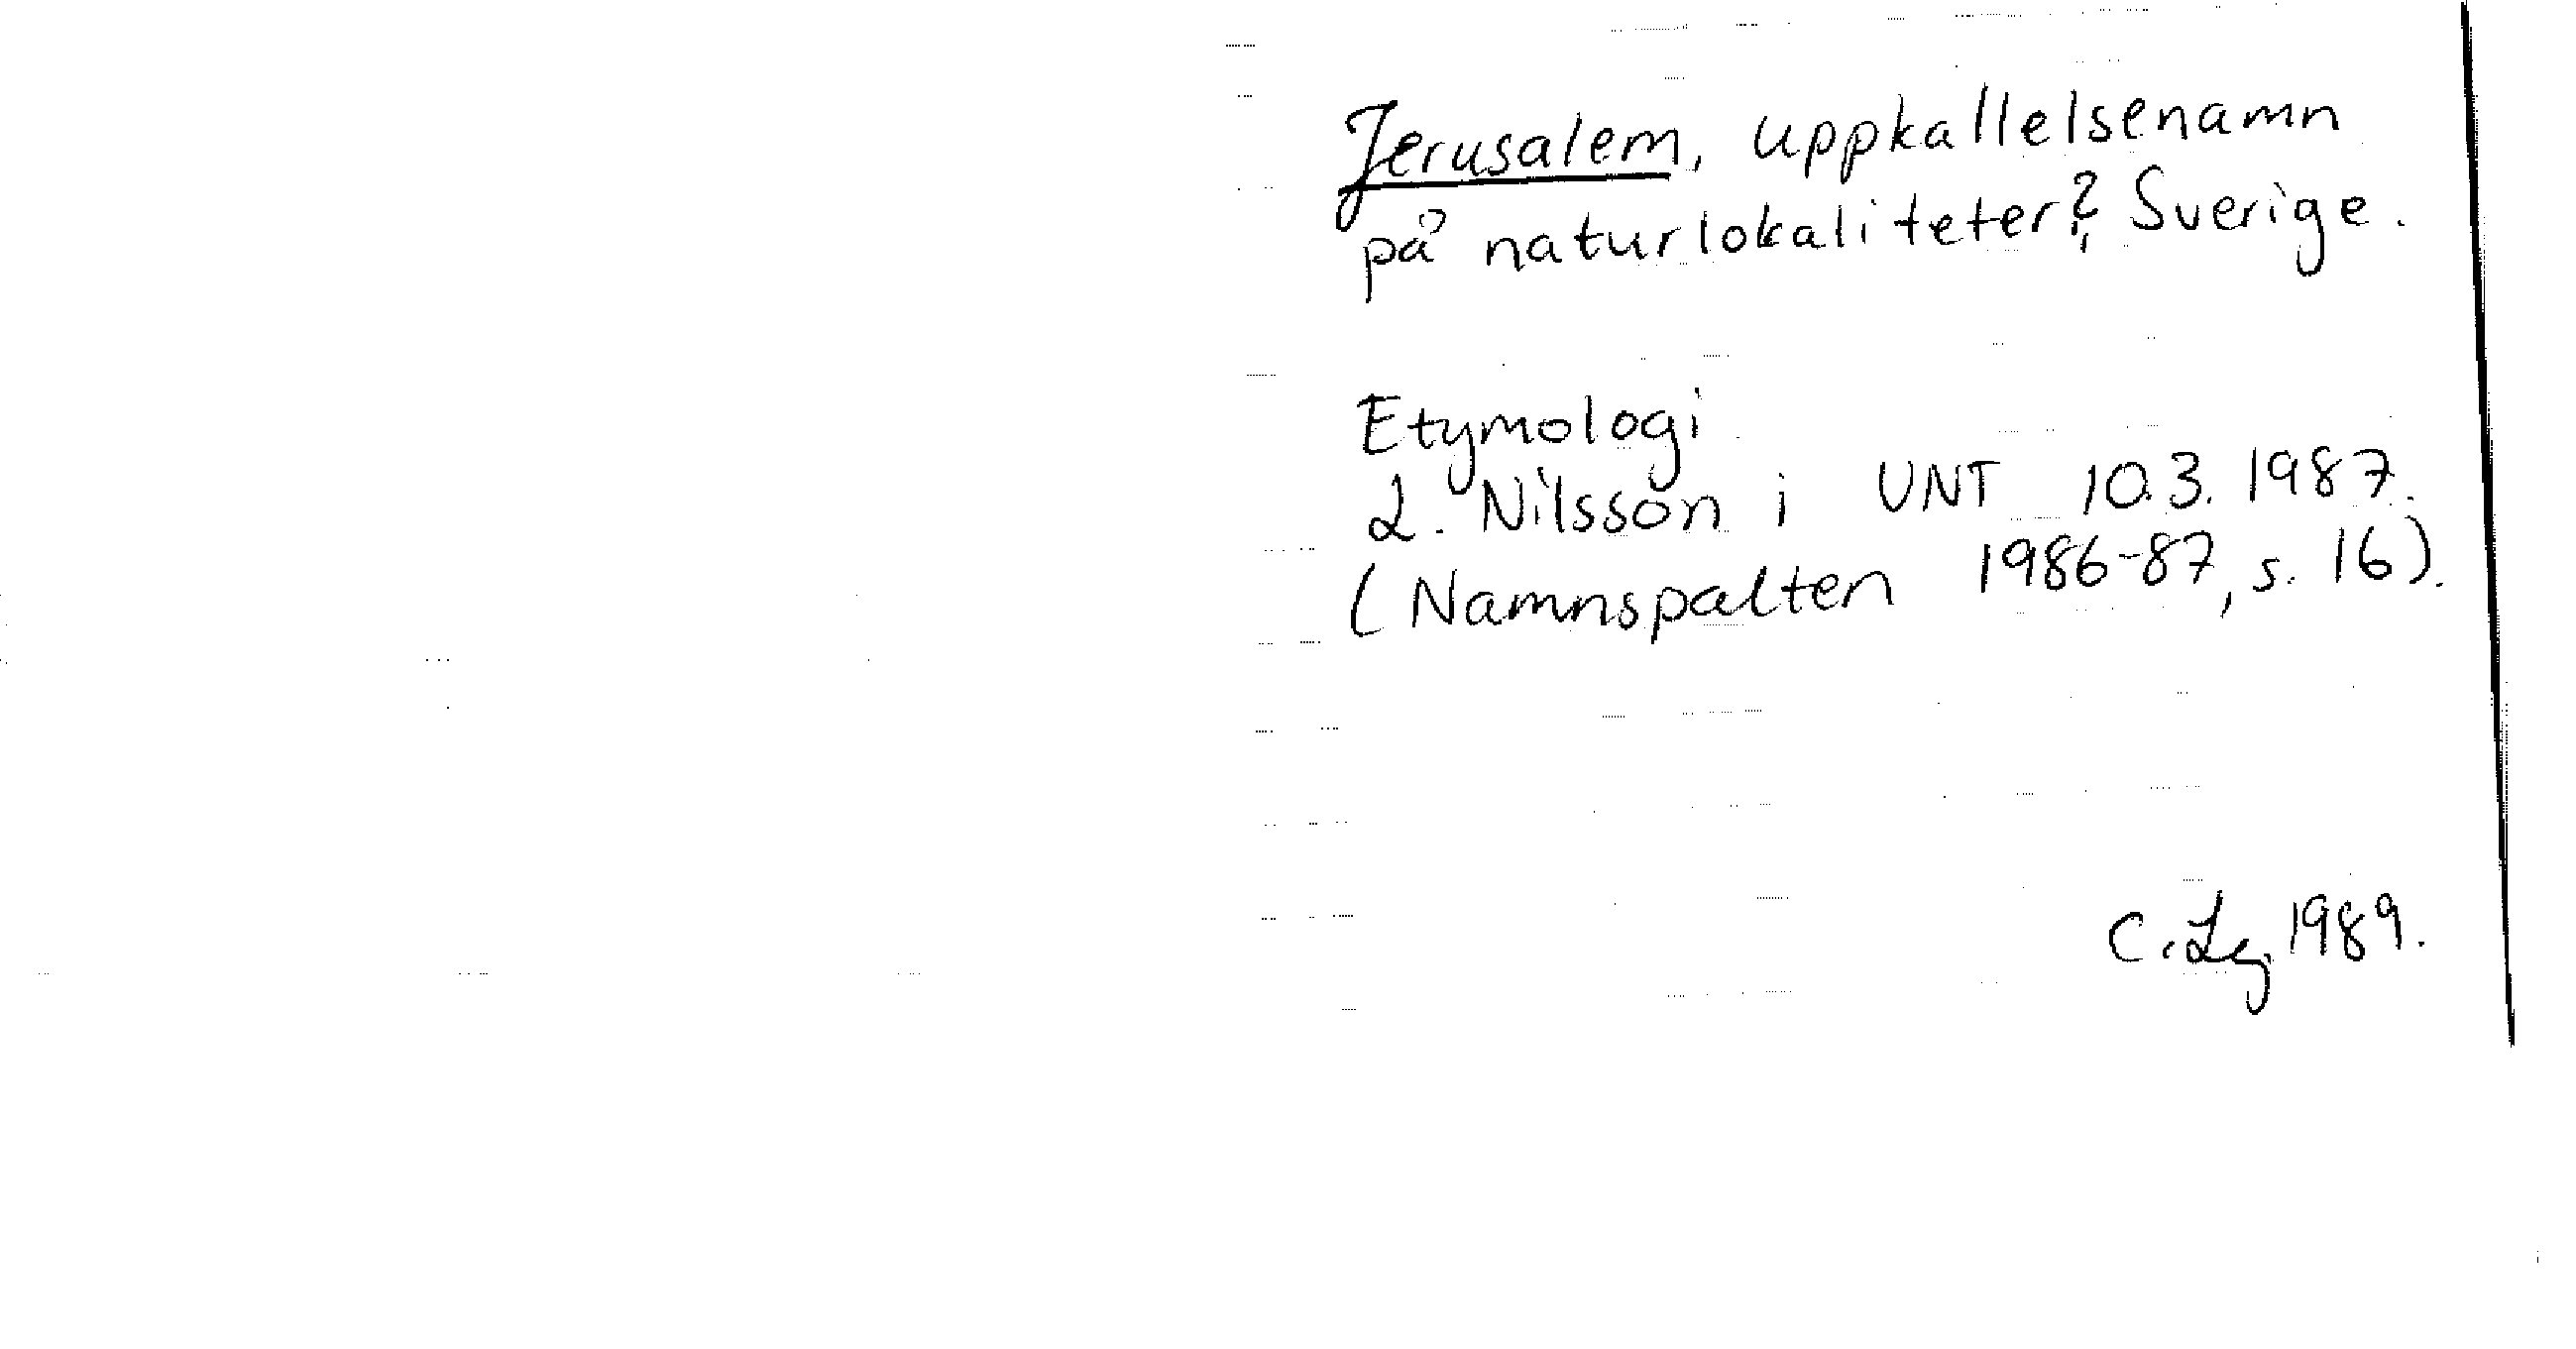 Jerusalem, uppkallelsenamn
på naturlokaliteter?, Sverige.
Etymologi
L. Nilsson i UNT 10.3. 1987.
(Namnspalten 1986-87, s. 16).
C. Lg 1989.